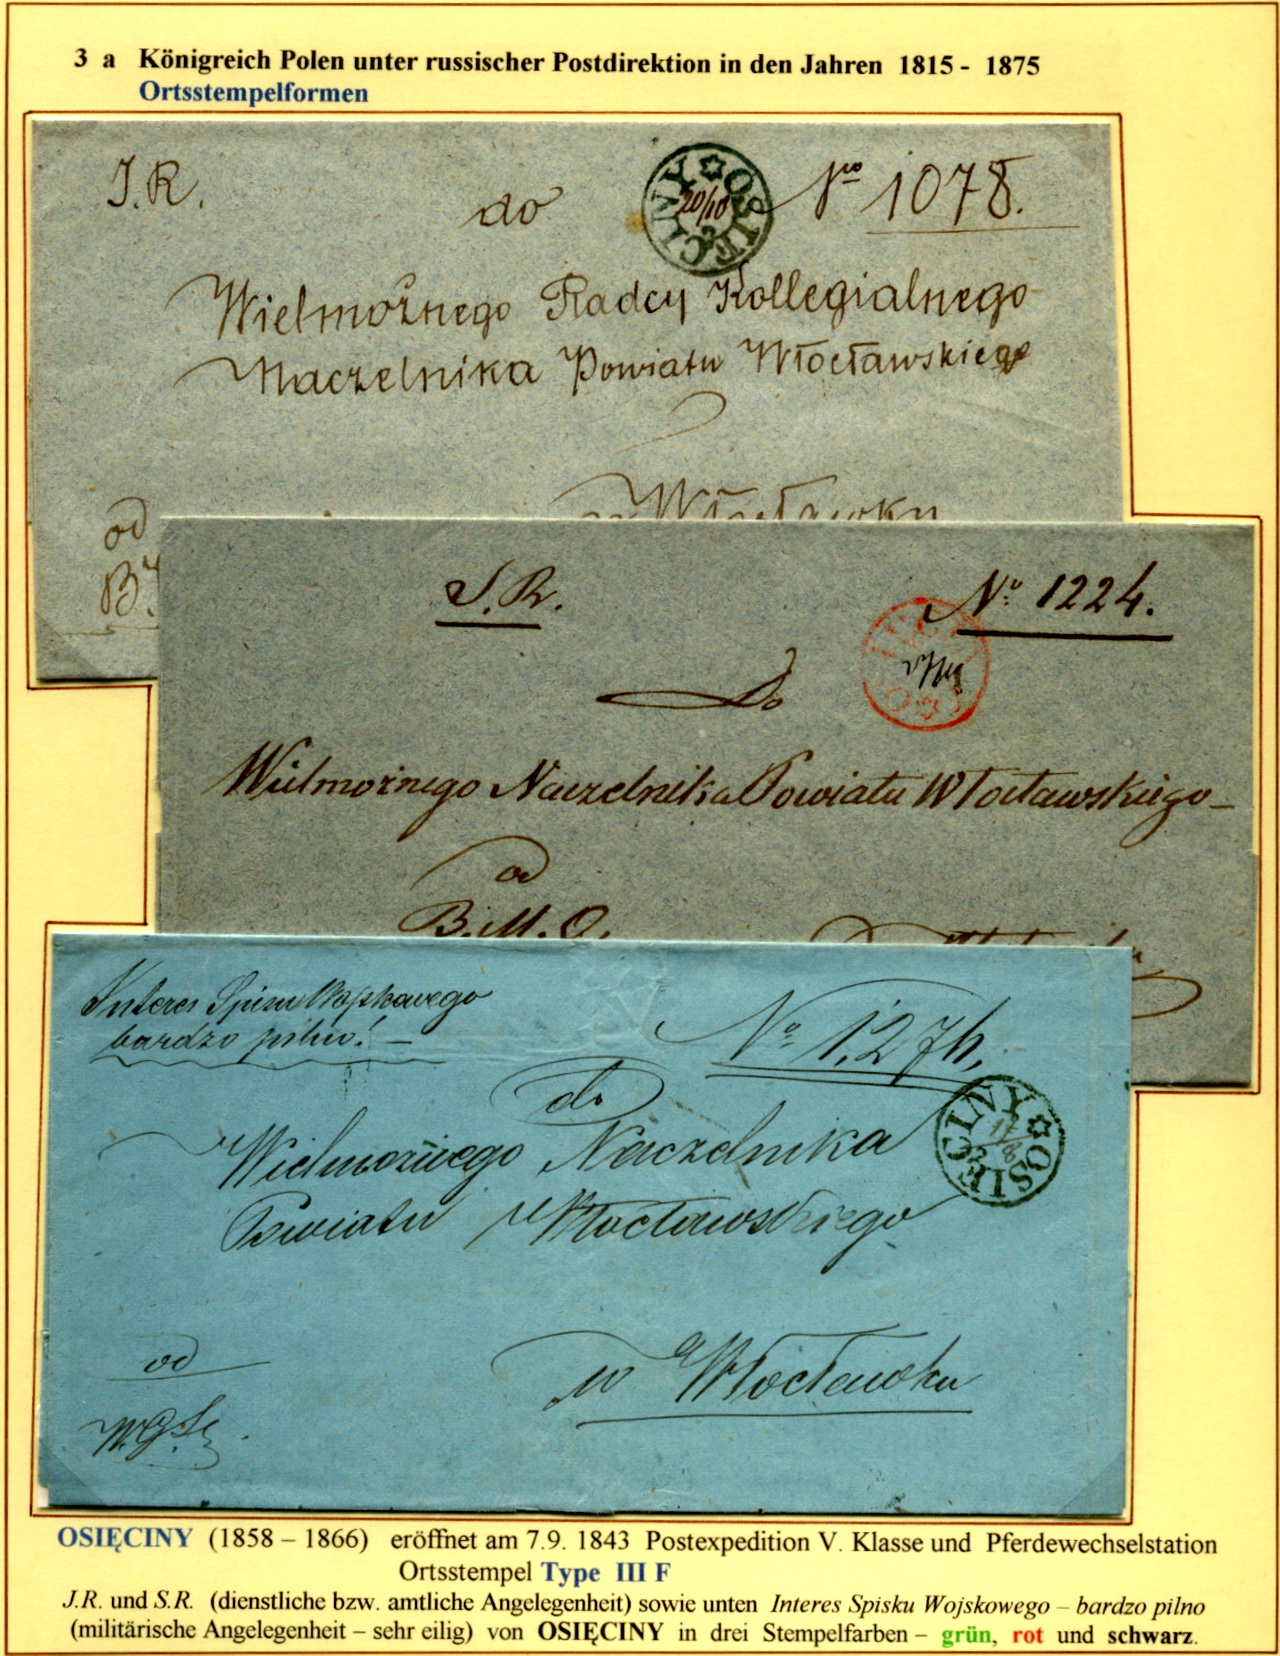 3 a Königreich Polen unter russischer Postdirektion in den Jahren 1815 - 1875
Ortsstempelformen
J.R.
do
OSIĘCINY
20/10
2
No 1078.
Wielmożnego Radcy Kollegialnego
Naczelnika Powiatu Włocławskiego
w Włocławku
od
S.R.
No 1224.
Do
Wielmożnego Naczelnika Powiatu Włocławskiego
od
B.M.O.
Interes Spisu Wojskowego
bardzo pilno! –
No 1,274.
do
OSIĘCINY
2
Wielmożnego Naczelnika
Powiatu Włocławskiego
w Włocławku
od
OSIĘCINY (1858 – 1866) eröffnet am 7.9. 1843 Postexpedition V. Klasse und Pferdewechselstation
Ortsstempel Type III F
J.R. und S.R. (dienstliche bzw. amtliche Angelegenheit) sowie unten Interes Spisku Wojskowego – bardzo pilno
(militärische Angelegenheit – sehr eilig) von OSIĘCINY in drei Stempelfarben – grün, rot und schwarz.